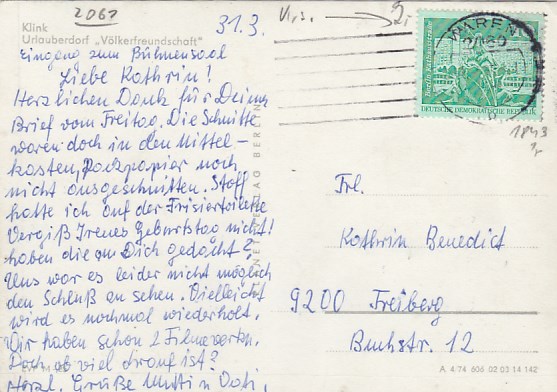 2061
Klink
Urlauberdorf „Völkerfreundschaft"
31.3.
Eingang zum Bühnensaal
Liebe Kathrin!
Herzlichen Dank für Deinen
Brief vom Freitag. Die Schnitte
waren doch in den Mittel-
kasten, Packpapier noch
nicht ausgeschnitten. Stoff
hatte ich auf der Frisiertoilette
Vergiß Irenes Geburtstag nicht!
haben die an Dich gedacht?
Uns war es leider nicht möglich
den Schluß an sehen. Vielleicht
wird es nochmal wiederholt.
Wir haben schon 2 Filmevorträ.
Doch ob viel drauf ist?
Herzl. Grüße Mutti u. Vati,
2,
WAREN
2060
DEUTSCHE DEMOKRATISCHE REPUBLIK
1843
Frl.
Kathrin Benedict
9200 Freiberg
Buchstr. 12
A 4.74 606 02 03 14 142